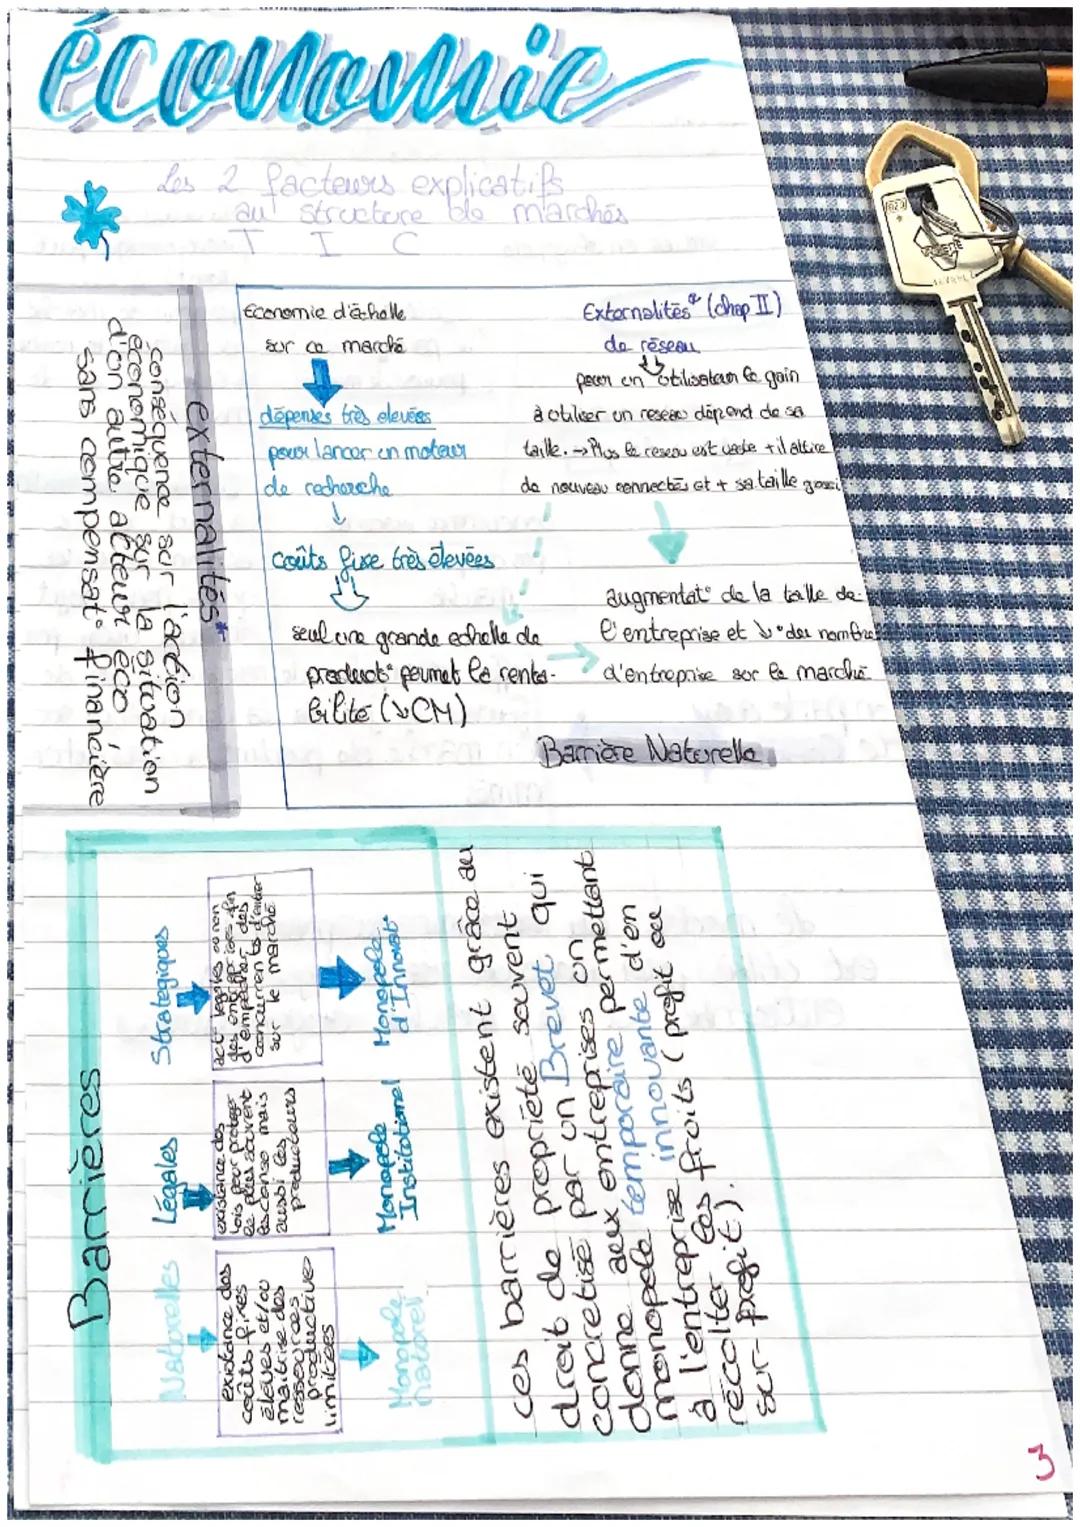 économie
Les 2 facteurs explicatifs
au structure de marchés
T I C
externalités*
conséquence sur l'action
économique sur la situation
d'un autre acteur éco
sans compensat° financière
Economie d'échelle
sur ce marché
dépenses très elevées
pour lancer un moteur
de recherche
coûts fixe très élevées
seul une grande echelle de
product° peumet la renta-
bilité (↘CM)
Externalités* (chap II)
de réseau
pour un utilisateur le gain
à utiliser un reseau dépend de sa
taille. → Plus le reseau est vaste + il attire
de nouveau connectés et + sa taille grossi
augmentat° de la taille de
l'entreprise et ↘° du nombre
d'entreprise sur le marché
Barrière Naturelle
Barrières
Naturelles
existence des
coûts fixes
élevés et/ou
maitrise des
ressources
productive
limitées
Monopole
naturel
Légales
existance des
lois pour proteger
le plus souvent
les conso mais
aussi les
producteurs
Monopole
Institutionel
Strategiques
act° legales ou non
des entreprises afin
d'empecher des
concurrents d'entrer
sur le marché
Monopole
d'Innovat°
ces barrières existent grâce au
droit de propriété souvent
concretisé par un Brevet qui
donne aux entreprises on
monopole temporaire permettant
à l'entreprise innovante d'en
récolter les fruits (profit ou
sur-profit).
3